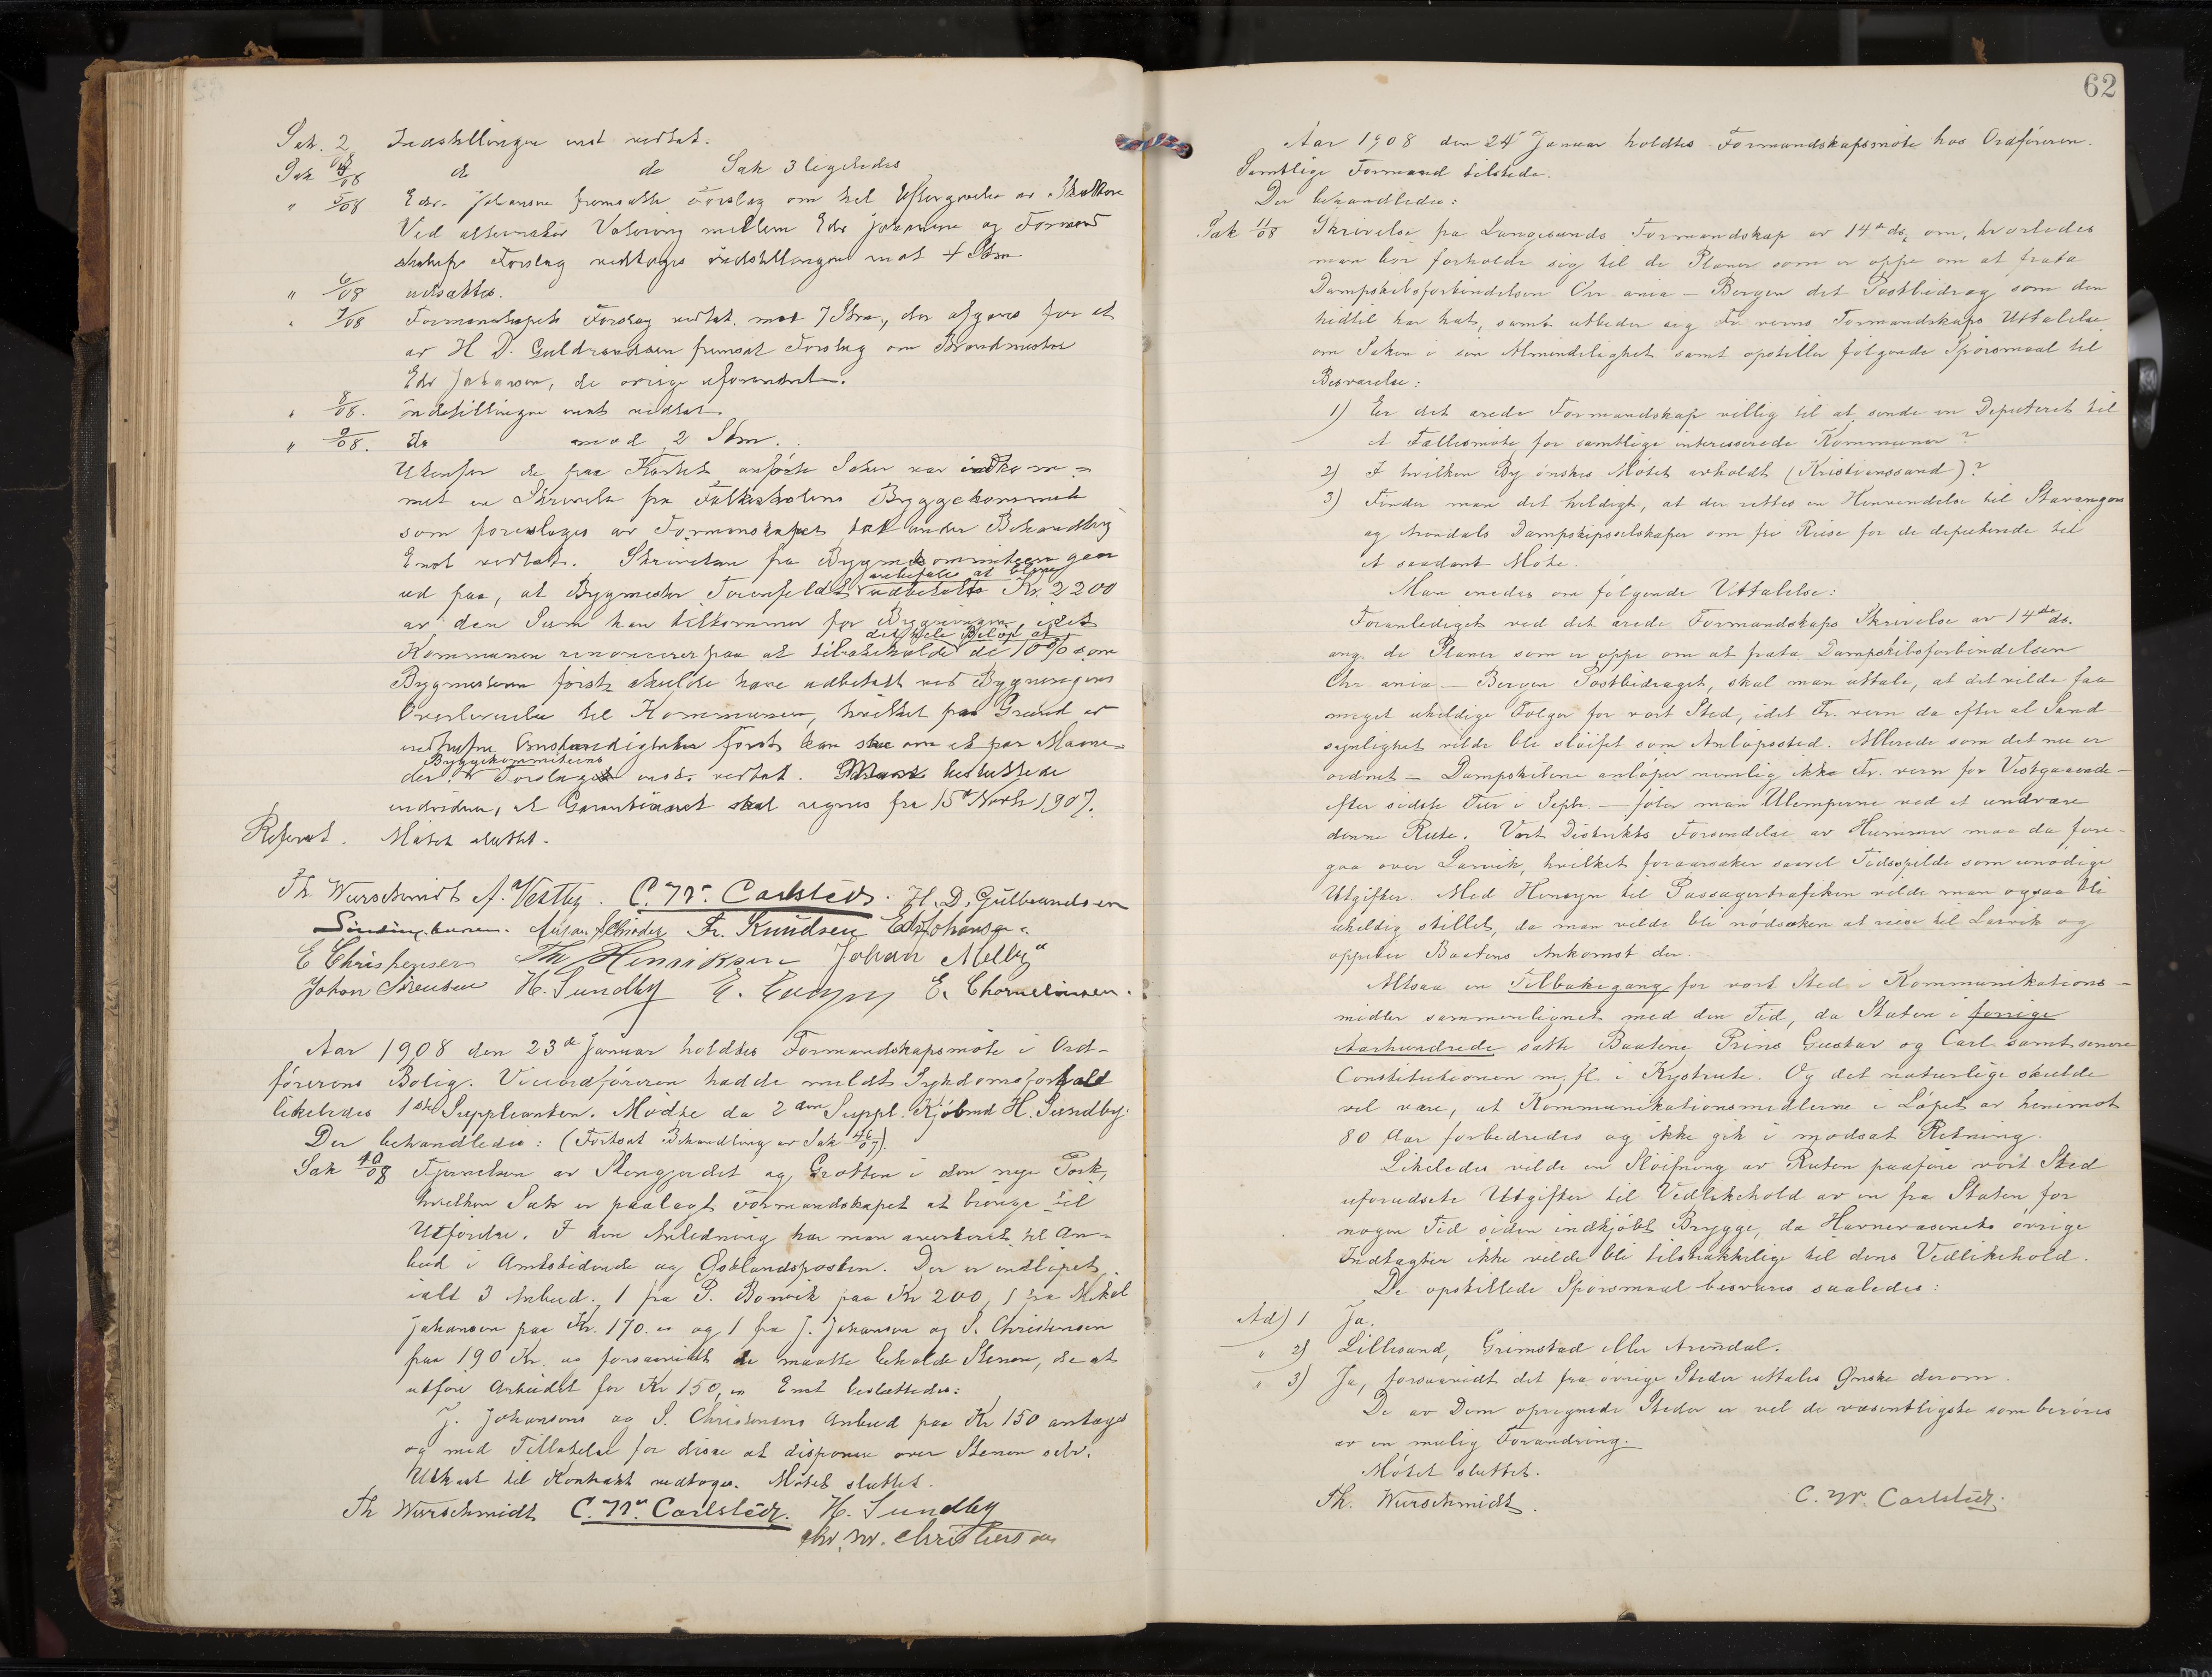 Sak. 2 Indstillingen enst. vedtat.
Sak 4/08 do do Sak 3 ligeledes
" 5/08 Edv. Johansen fremsatte Forslag om hel Eftergivelse av Skatten
Ved alternativ Votering mellem Edv Johansens og Formand
skabets Forslag vedtoges indstillingen mot 4 Stm.
" 6/08 udsættes.
" 7/08 Formandskapets Forslag vedtat mot 7 Stm., der afgaves for et
av H. D. Gulbrandsen fremsat Forslag om Brandmester
Edv Johansen, de øvrige uforandret.
" 8/08. Indstillingen enst. vedtat.
" 9/08. do mod 2 Stm.
Utenfor de paa Kartet anførte Saker var indkom=
met en Skrivelse fra Folkeskolens Byggekommité
som foresloges av Formandskapet tat under Behandling
Enst vedtat. Skrivelsen fra Byggekommiteen gaar
anbefales at blive
ud paa, at Bygmester Torenfeldt udbetalt Kr. 2200
av den Sum han tilkommer for Bygningen, idet
det hele Beløb at
Kommunen renoncerer paa at tilbakeholde de 10% som
Bygmesteren først skulde have udbetalt ved Bygningens
Overleverelse til Kommunen, hvilket paa Grund av
indtrufne Omstændigheter først kan ske om et par Maane=
Byggekommiteens
der. Forslaget enst. vedtat. Man besluttede
endvidere, at Garantiaaret skal regnes fra 15de Novbr 1907.
Referat. Møtet sluttet.
Th Wurschmidt A. Vestby. C. W. Carlstedt. H. D. Gulbrandsen
Fr. Knudsen Edv Johansen
E Christensen Th Henriksen Johan Melby
Johan Sørensen H. Sundby E.
Aar 1908 den 23de Januar holdtes Formandskapsmøte i Ord-
førerens Bolig. Viceordføreren hadde meldt Sykdomsforfald
likeledes 1ste Suppleanten. Mødte da 2den Suppl. Kjøbmd H. Sundby.
Der behandledes: (Fortsat Behandling av Sak 46/07).
Sak 10/08 Fjernelsen av Stengjerdet og Grotten i den nye Park,
hvilken Sak er paalagt Formandskapet at bringe til
Utførelse. I den Anledning har man averteret til An-
bud i Amtstidende og Østlandsposten. Der er indløpet
ialt 3 Anbud. 1 fra P. Bonvik paa Kr 200, 1 fra Mikal
Johansen paa Kr. 170.00 og 1 fra J. Johansen og S. Christensen
paa 190 Kr. og forsaavidt de maatte beholde Stenen, da at
utføre Arbeidet for Kr 150,00 Enst besluttedes:
J. Johansens og S. Christensens Anbud paa Kr 150 antages
og med Tilladelse for disse at disponere over Stenen selv.
Utkast til Kontrakt vedtoges. Møtet sluttet.
Th Wurschmidt C. W. Carlstedt. H. Sundby
Chr. M. Christensen
62
Aar 1908 den 24de Januar holdtes Formandskapsmøte hos Ordføreren.
Samtlige Formænd tilstede.
Der behandledes:
Sak 11/08 Skrivelse fra Langesunds Formandskap av 14de ds. om, hvorledes
man bør forholde sig til de Planer som er oppe om at frata
Dampskibsforbindelsen Chr.ania – Bergen det Postbidrag som den
hidtil har hat, samt utbeder sig Fr.verns Formandskaps Uttalelse
om Saken i sin Almindelighet samt opstiller følgende Spørsmaal til
Besvarelse:
1) Er det ærede Formandskap villig til at sende en Deputeret til
et Fællesmøte for samtlige interesserede Kommuner?
2) I hvilken By ønskes Møtet avholdt (Kristianssand)?
3) Finder man det heldigt, at der rettes en Henvendelse til Stavangers
og Arendals Dampskipsselskaper om fri Reise for de deputerede til
et saadant Møte.
Man enedes om følgende Uttalelse:
Foranlediget ved det ærede Formandskaps Skrivelse av 14de ds.
ang. de Planer som er oppe om at frata Dampskibsforbindelsen
Chr.ania – Bergen Postbidraget, skal man uttale, at det vilde faa
meget uheldige Følger for vort Sted, idet Fr.vern da efter al Sand-
synlighet vilde bli sløifet som Anløpssted. Allerede som det nu er
ordnet – Dampskibene anløper nemlig ikke Fr.vern for Vestgaaende –
efter sidste Tur i Septr. – føler man Ulemperne ved at undvære
denne Rute. Vort Distrikts Forsendelse av Hummer maa da fore-
gaa over Larvik, hvilket foraarsaker saavel Tidsspilde som unødige
Utgifter. Med Hensyn til Passagertrafiken vilde man ogsaa bli
uheldig stillet, da man vilde bli nødsaken at reise til Larvik og
oppebie Baatens Ankomst der.
Altsaa en Tilbakegang for vort Sted i Kommunikations-
midler sammenlignet med den Tid, da Staten i forrige
Aarhundrede satte Baatene Prins Gustav og Carl samt senere
Constitutionen m. fl. i Kystrute. Og det naturlige skulde
vel være, at Kommunikationsmidlerne i Løpet av henimot
80 Aar forbedredes og ikke gik i modsat Retning.
Likeledes vilde en Sløifning av Ruten paaføre vort Sted
uforudsete Utgifter til Vedlikehold av en fra Staten for
nogen Tid siden indkjøbt Brygge, da Havnevæsenets øvrige
Indtægter ikke vilde bli tilstrækkelige til dens Vedlikehold.
De opstillede Spørsmaal besvares saaledes:
Ad) 1 Ja.
" 2) Lillesand, Grimstad eller Arendal.
" 3) Ja, forsaavidt det fra øvrige Steder uttales Ønske derom.
De av Dem opregnede Steder er vel de væsentligste som berøres
av en mulig Forandring.
Møtet sluttet.
Th. Wurschmidt. C. W. Carlstedt.